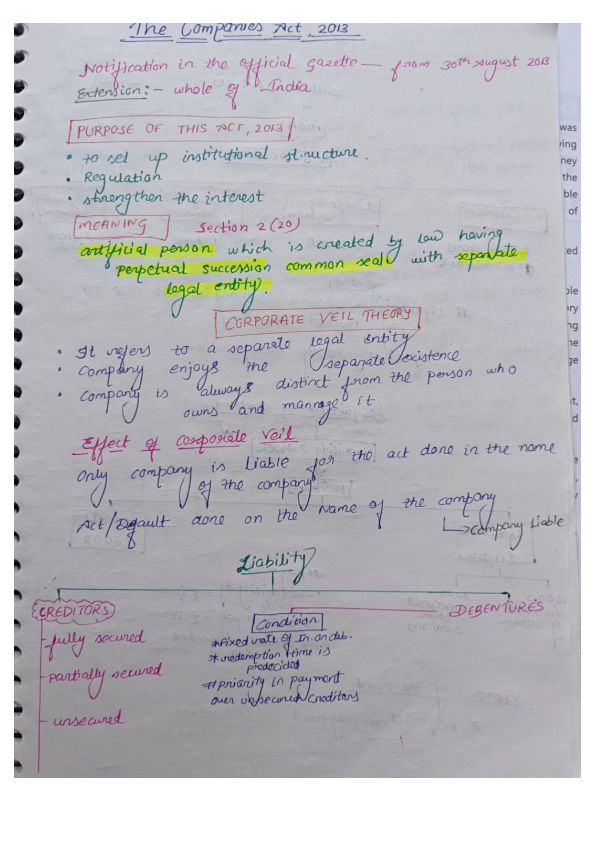 The Companies Act, 2013
Notification in the official gazette — from 30th August 2013
Extension:- whole of India
PURPOSE OF THIS ACT, 2013
• to set up institutional structure.
• Regulation
• strengthen the interest
MEANING Section 2(20)
artificial person which is created by law having
perpetual succession common seal with separate
legal entity.
CORPORATE VEIL THEORY
• It refers to a separate legal Entity
• Company enjoys the separate existence
• Company is always distinct from the person who
owns and mannage it
Effect of Corporate Veil
Only company is Liable for the act done in the name
of the company
Act/Default done on the Name of the company
↳ Company Liable
Liability
CREDITORS
DEBENTURES
- fully secured
- partially secured
- unsecured
Condition
* Fixed rate of In. on deb.
* redemption time is
predecided
* priority in payment
over unsecured creditors
was
ving
ney
the
ble
of